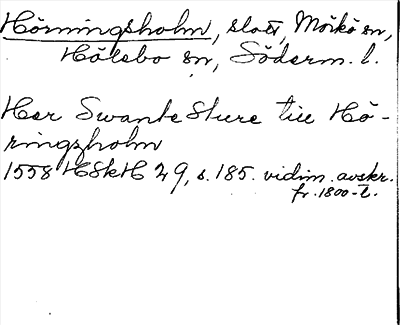 Hörningsholm, slott, Mörkö sn,
Hölebo sn, Söderm. l.
Her Swante Sture till Hö-
ringzholm
1558 HSkH 29, s. 185. vidim. avskr.
fr. 1800-t.